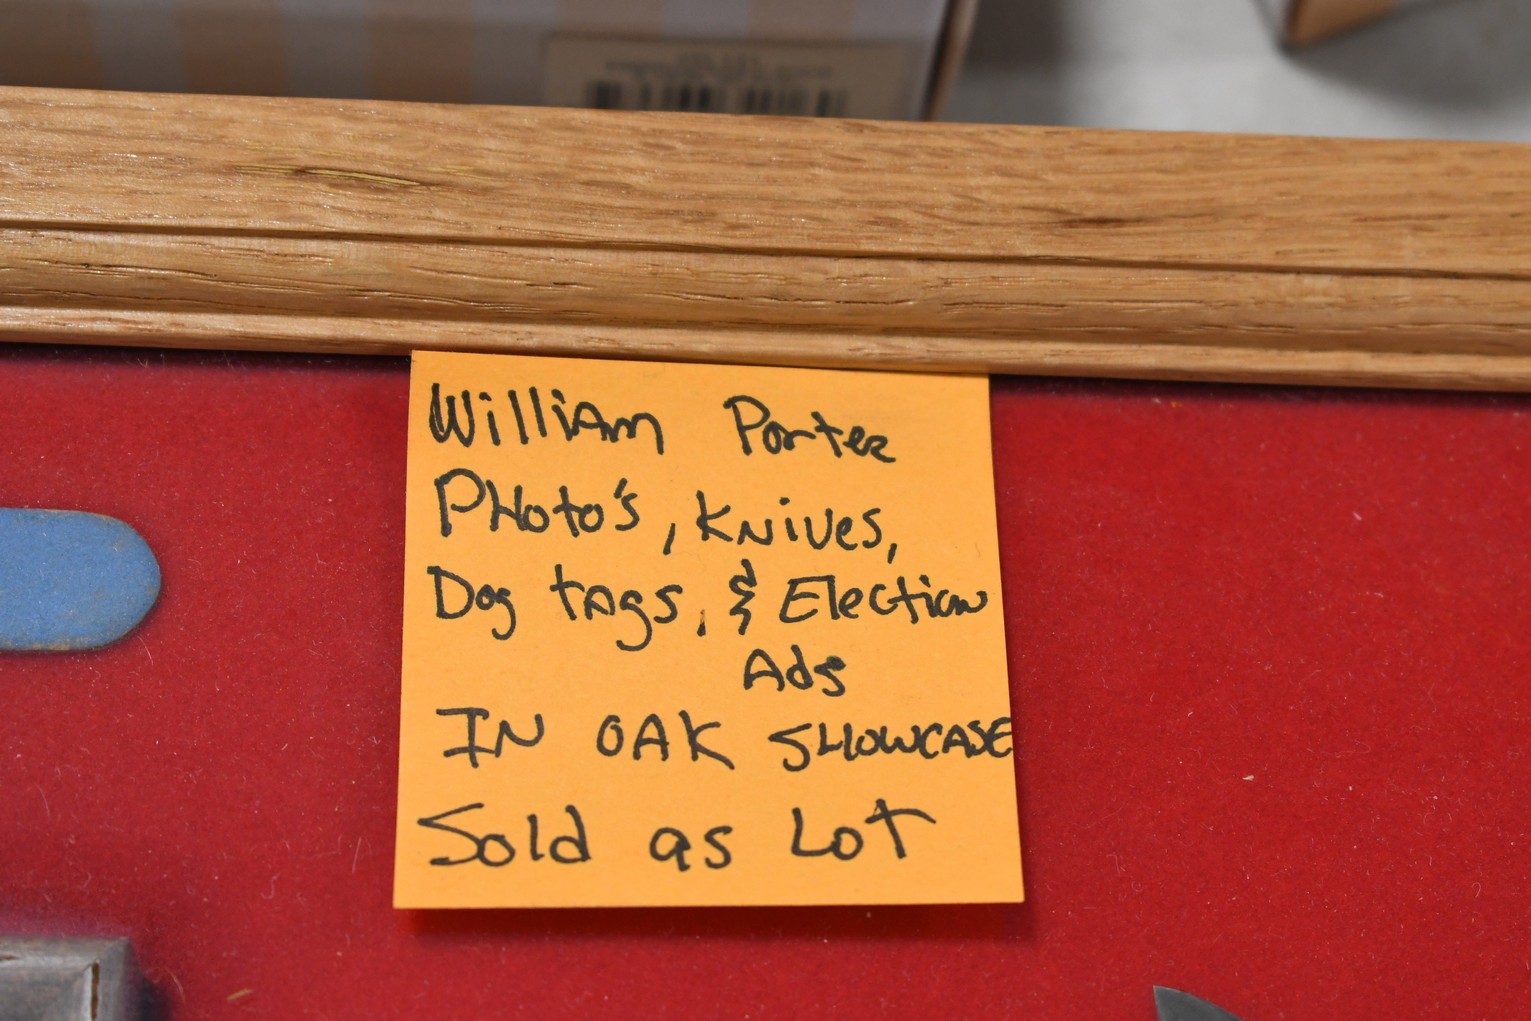 William Porter
PHoto's, Knives,
Dog tAgs, & Election
Ads
IN OAK SHOWCASE
Sold as Lot